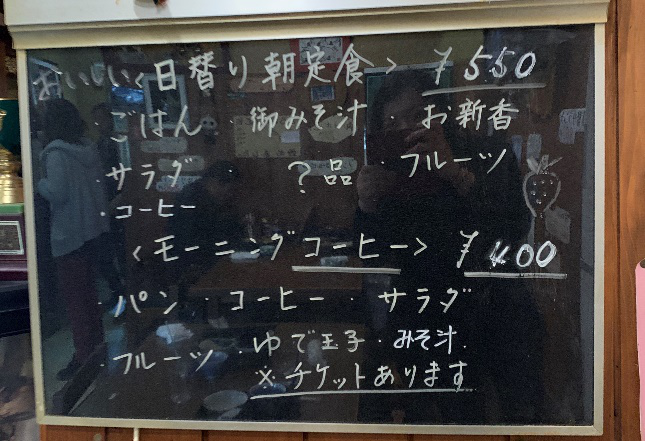 おいしい<日替り朝定食> ¥550
・ごはん ・御みそ汁 ・お新香
・サラダ ・?品 ・フルーツ
・コーヒー
<モーニングコーヒー> ¥400
・パン ・コーヒー ・サラダ
・フルーツ ・ゆで玉子 ・みそ汁
※チケットあります